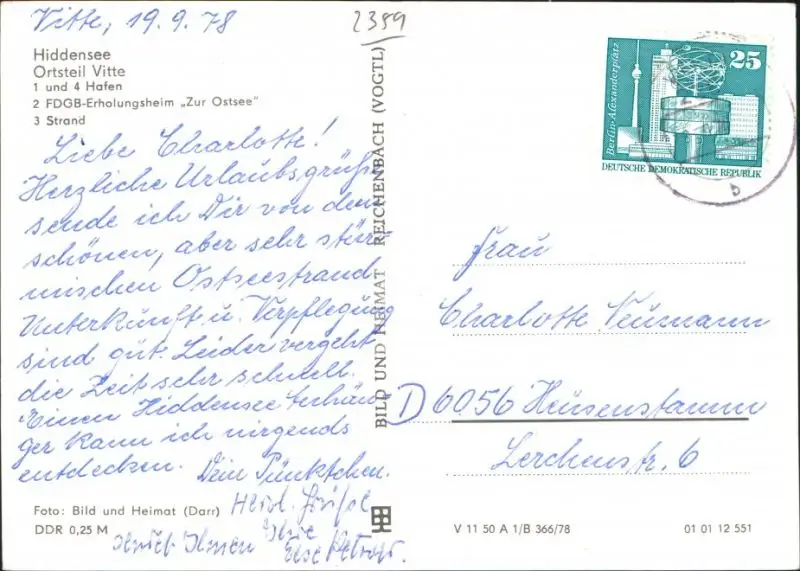 Vitte, 19.9.78
2359
Hiddensee
Ortsteil Vitte
1 und 4 Hafen
2 FDGB-Erholungsheim „Zur Ostsee"
3 Strand
Liebe Charlotte!
Herzliche Urlaubsgrüße
sende ich Dir von dem
schönen, aber sehr stür-
mischen Ostseestrand.
Unterkunft u. Verpflegung
sind gut. Leider vergeht
die Zeit sehr schnell.
Einen Hiddensee Anhän-
ger kann ich nirgends
entdecken. Dein Pünktchen.
Herzl. Grüße
Ihnen Ihre
Foto: Bild und Heimat (Darr)
DDR 0,25 M
BILD UND HEIMAT REICHENBACH (VOGTL)
Berlin-Alexanderplatz
25
DEUTSCHE DEMOKRATISCHE REPUBLIK
b
Frau
Charlotte Neumann
D 6056 Heusenstamm
Lerchenstr. 6
V 11 50 A 1/B 366/78
01 01 12 551